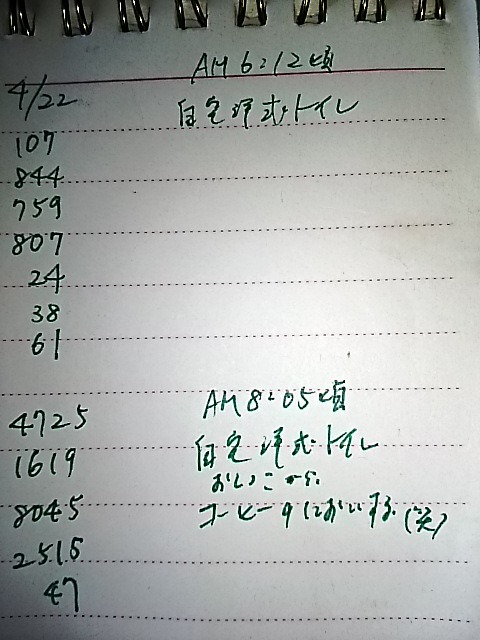 AM 6:12頃
4/22
自宅洋式トイレ
107
844
759
807
24
38
61
AM 8:05頃
4725
自宅洋式トイレ
1619
おしっこから
8045
コーヒーのにおいする(笑)
2515
47